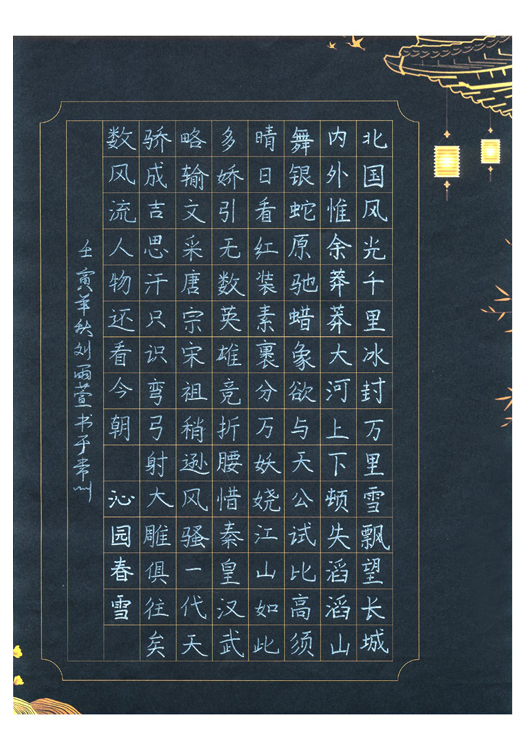 北国风光千里冰封万里雪飘望长城
内外惟余莽莽大河上下顿失滔滔山
舞银蛇原驰蜡象欲与天公试比高须
晴日看红装素裹分万妖娆江山如此
多娇引无数英雄竞折腰惜秦皇汉武
略输文采唐宗宋祖稍逊风骚一代天
骄成吉思汗只识弯弓射大雕俱往矣
数风流人物还看今朝 沁园春雪
壬寅年秋刘雨萱书于常州